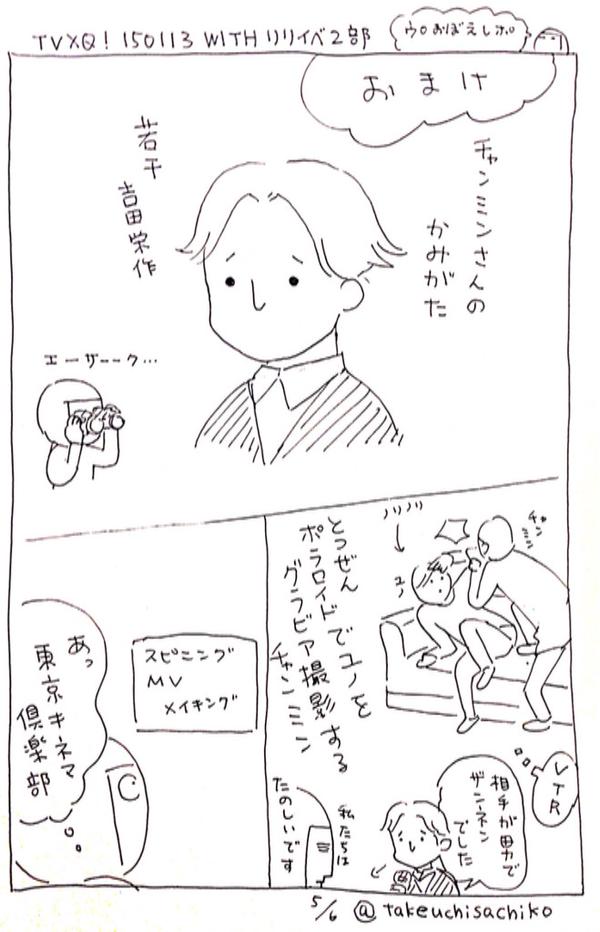 TVXQ! 150113 WITH リリイベ2部
ウロおぼえレポ
おまけ
チャンミンさんの
かみがた
若干
吉田栄作
エーザーク…
ノリノリ
チャンミン
ユノ
とつぜん
ポラロイドでユノを
グラビア撮影する
チャンミン
VTR
相手が男で
ザンネン
でした
私たちは
たのしいです
スピニング
MV
メイキング
あっ
東京キネマ
倶楽部
5/6 @takeuchisachiko